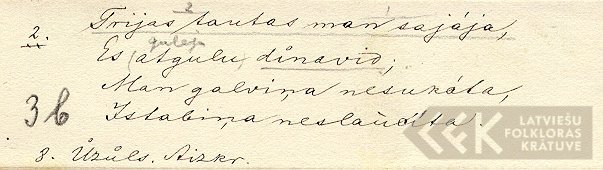 2
2. Trijas tautas man sajája,
guleju
Es atgulu důnavid;
Man galviņa nesukáta,
3b Istabiņa neslaucíta.
3. Ůzůls. Aizkr.
LATVIEŠU
FOLKLORAS
KRĀTUVE